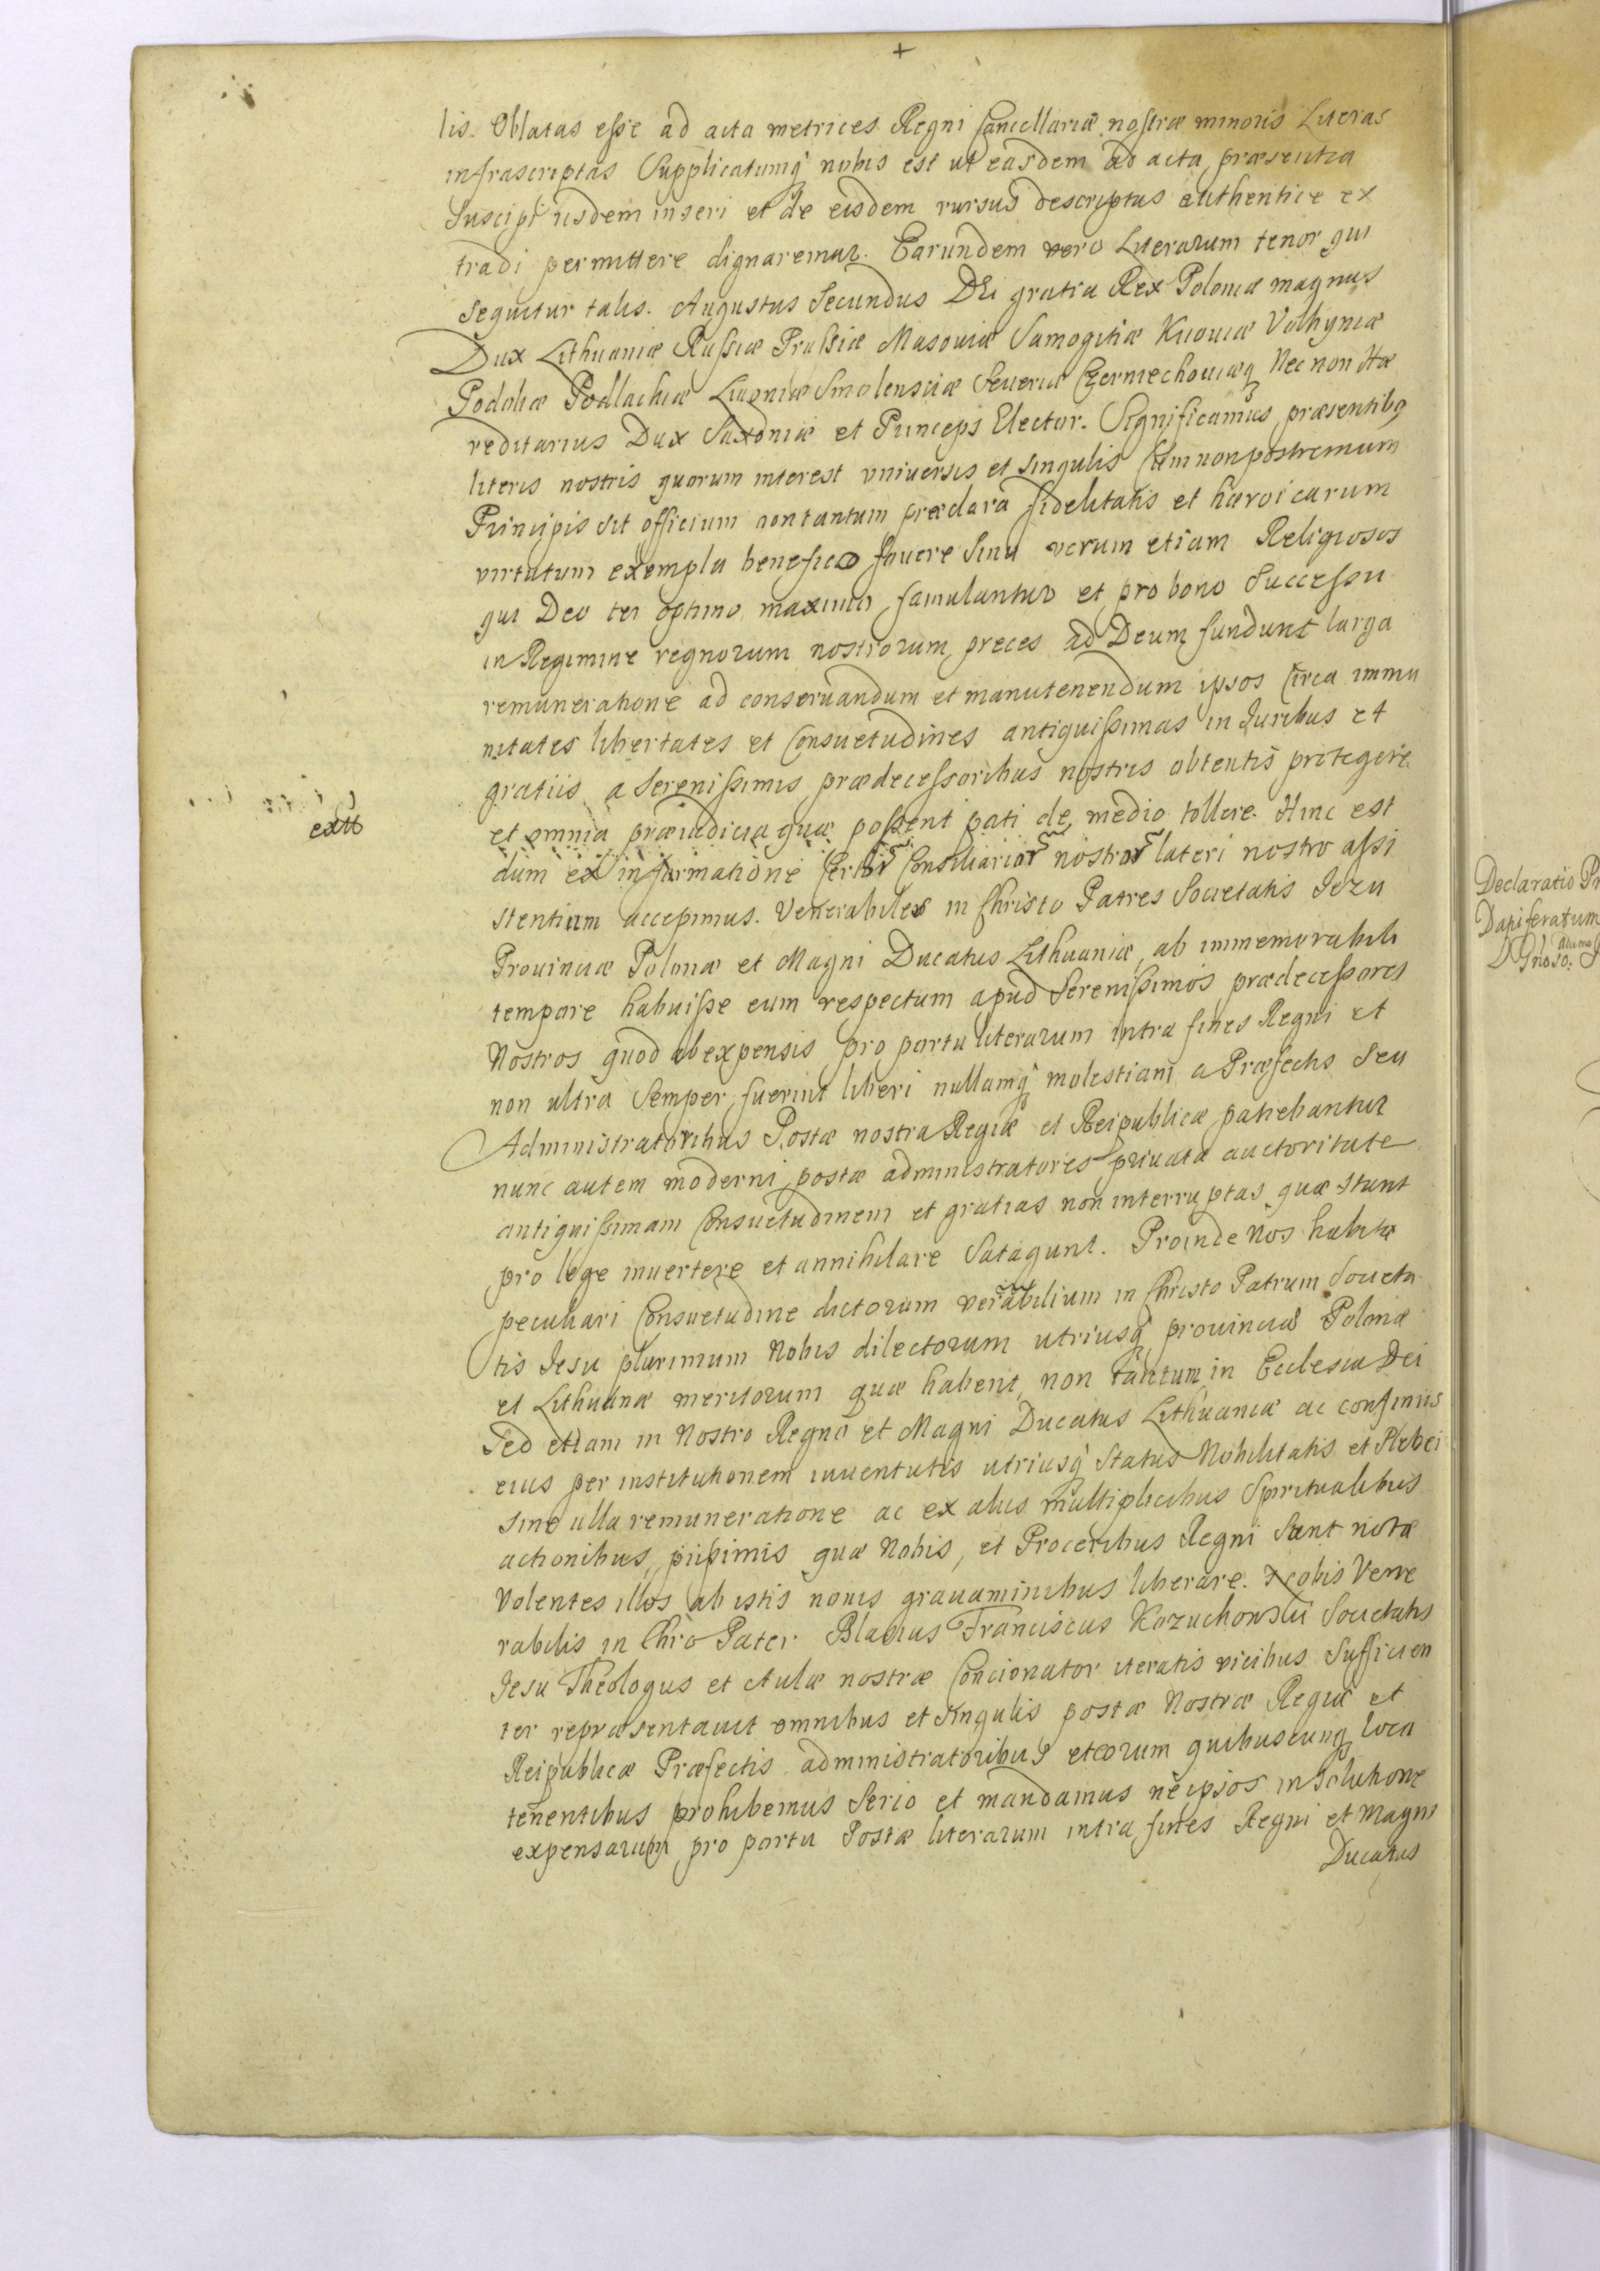 +
lis. Oblatas esse ad acta metrices Regni Cancellariæ nostræ minoris Literas
infrascriptas Supplicatumq̃ nobis est ut easdem ad acta præsentia
Suscipi iisdem inseri et de eisdem rursus descriptas authentice ex
tradi permittere dignaremur. Earundem vero Literarum tenor qui
sequitur talis. Augustus Secundus Dei gratia Rex Poloniæ magnus
Dux Lithuaniæ Russiæ Prussiæ Masoviæ Samogitiæ Kiioviæ Volhyniæ
Podoliæ Podlachiæ Livoniæ Smolensciæ Severiæ Czerniechoviæq Nec non Hæ
reditarius Dux Saxoniæ et Princeps Elector. Significamus præsentibq
literis nostris quorum interest vniversis et singulis Cum non postremum
Principis sit officium non tantum præclara fidelitatis et hæroicarum
virtutum exempla benefico fovere Sinu verum etiam Religiosos
qui Deo ter optimo maximo famulantur et pro bono Successu
in Regimine regnorum nostrorum preces ad Deum fundunt larga
remuneratione ad conservandum et manutenendum ipsos Circa immu
nitates libertates et Consuetudines antiquissimas in Juribus et
gratiis a Serenissimis prædecessoribus nostris obtentis protegere
et omnia præiudicia quæ possent pati de medio tollere. Hinc est
extt
dum ex informatione Certor Consiliarior nostror lateri nostro assi
stentium accepimus. Venerabiles in Christo Patres Societatis Jezu
Provinciæ Polonæ et Magni Ducatus Lithuaniæ, ab immemorabili
tempore habuisse eum respectum apud Serenissimos prædecessores
Nostros quod ab expensis pro portu literarum intra fines Regni et
non ultra Semper fuerint liberi nullamq̃ molestiam a Præfectis Seu
Administratoribus Postæ nostra Regiæ et Reipublicæ patiebantur
nunc autem moderni postæ administratores privata auctoritate
antiquissimam Consuetudinem et gratias non interruptas quæ stant
pro lege invertere et annihilare Satagunt. Proinde Nos habita
peculiari Consuetudine dictorum venrabilium in Christo Patrum Societa
tis Jesu plurimum Nobis dilectorum utriusq̃ provinciæ Polonæ
et Lithuanæ meritorum quæ habent non tantum in Ecclesia Dei
Sed etiam in Nostro Regno et Magni Ducatus Lithuaniæ ac confiniis
eius per institutionem iuventutis utriusq̃ Status Nobilitatis et Plebei
sine ulla remuneratione ac ex aliis multiplicibus Spiritualibus
actionibus, piissimis quæ Nobis, et Proceribus Regni Sunt nota
Volentes illos ab istis novis gravaminibus liberare. Nobis Vene
rabilis in Chrõ Pater Blasius Franciscus Kozuchowski Societatis
Jesu Theologus et Aulæ nostræ Concionator iteratis vicibus Sufficien
ter repræsentavit omnibus et Singulis postæ Nostræ Regiæ et
Reipublicæ Præfectis administratoribus et eorum quibuscunq loca
tenentibus prohibemus Serio et mandamus ne ipsos in Solutione
expensarum pro portu Postæ literarum intra fines Regni et Magni
Ducatus
Declaratio Pr
Dapiferatum